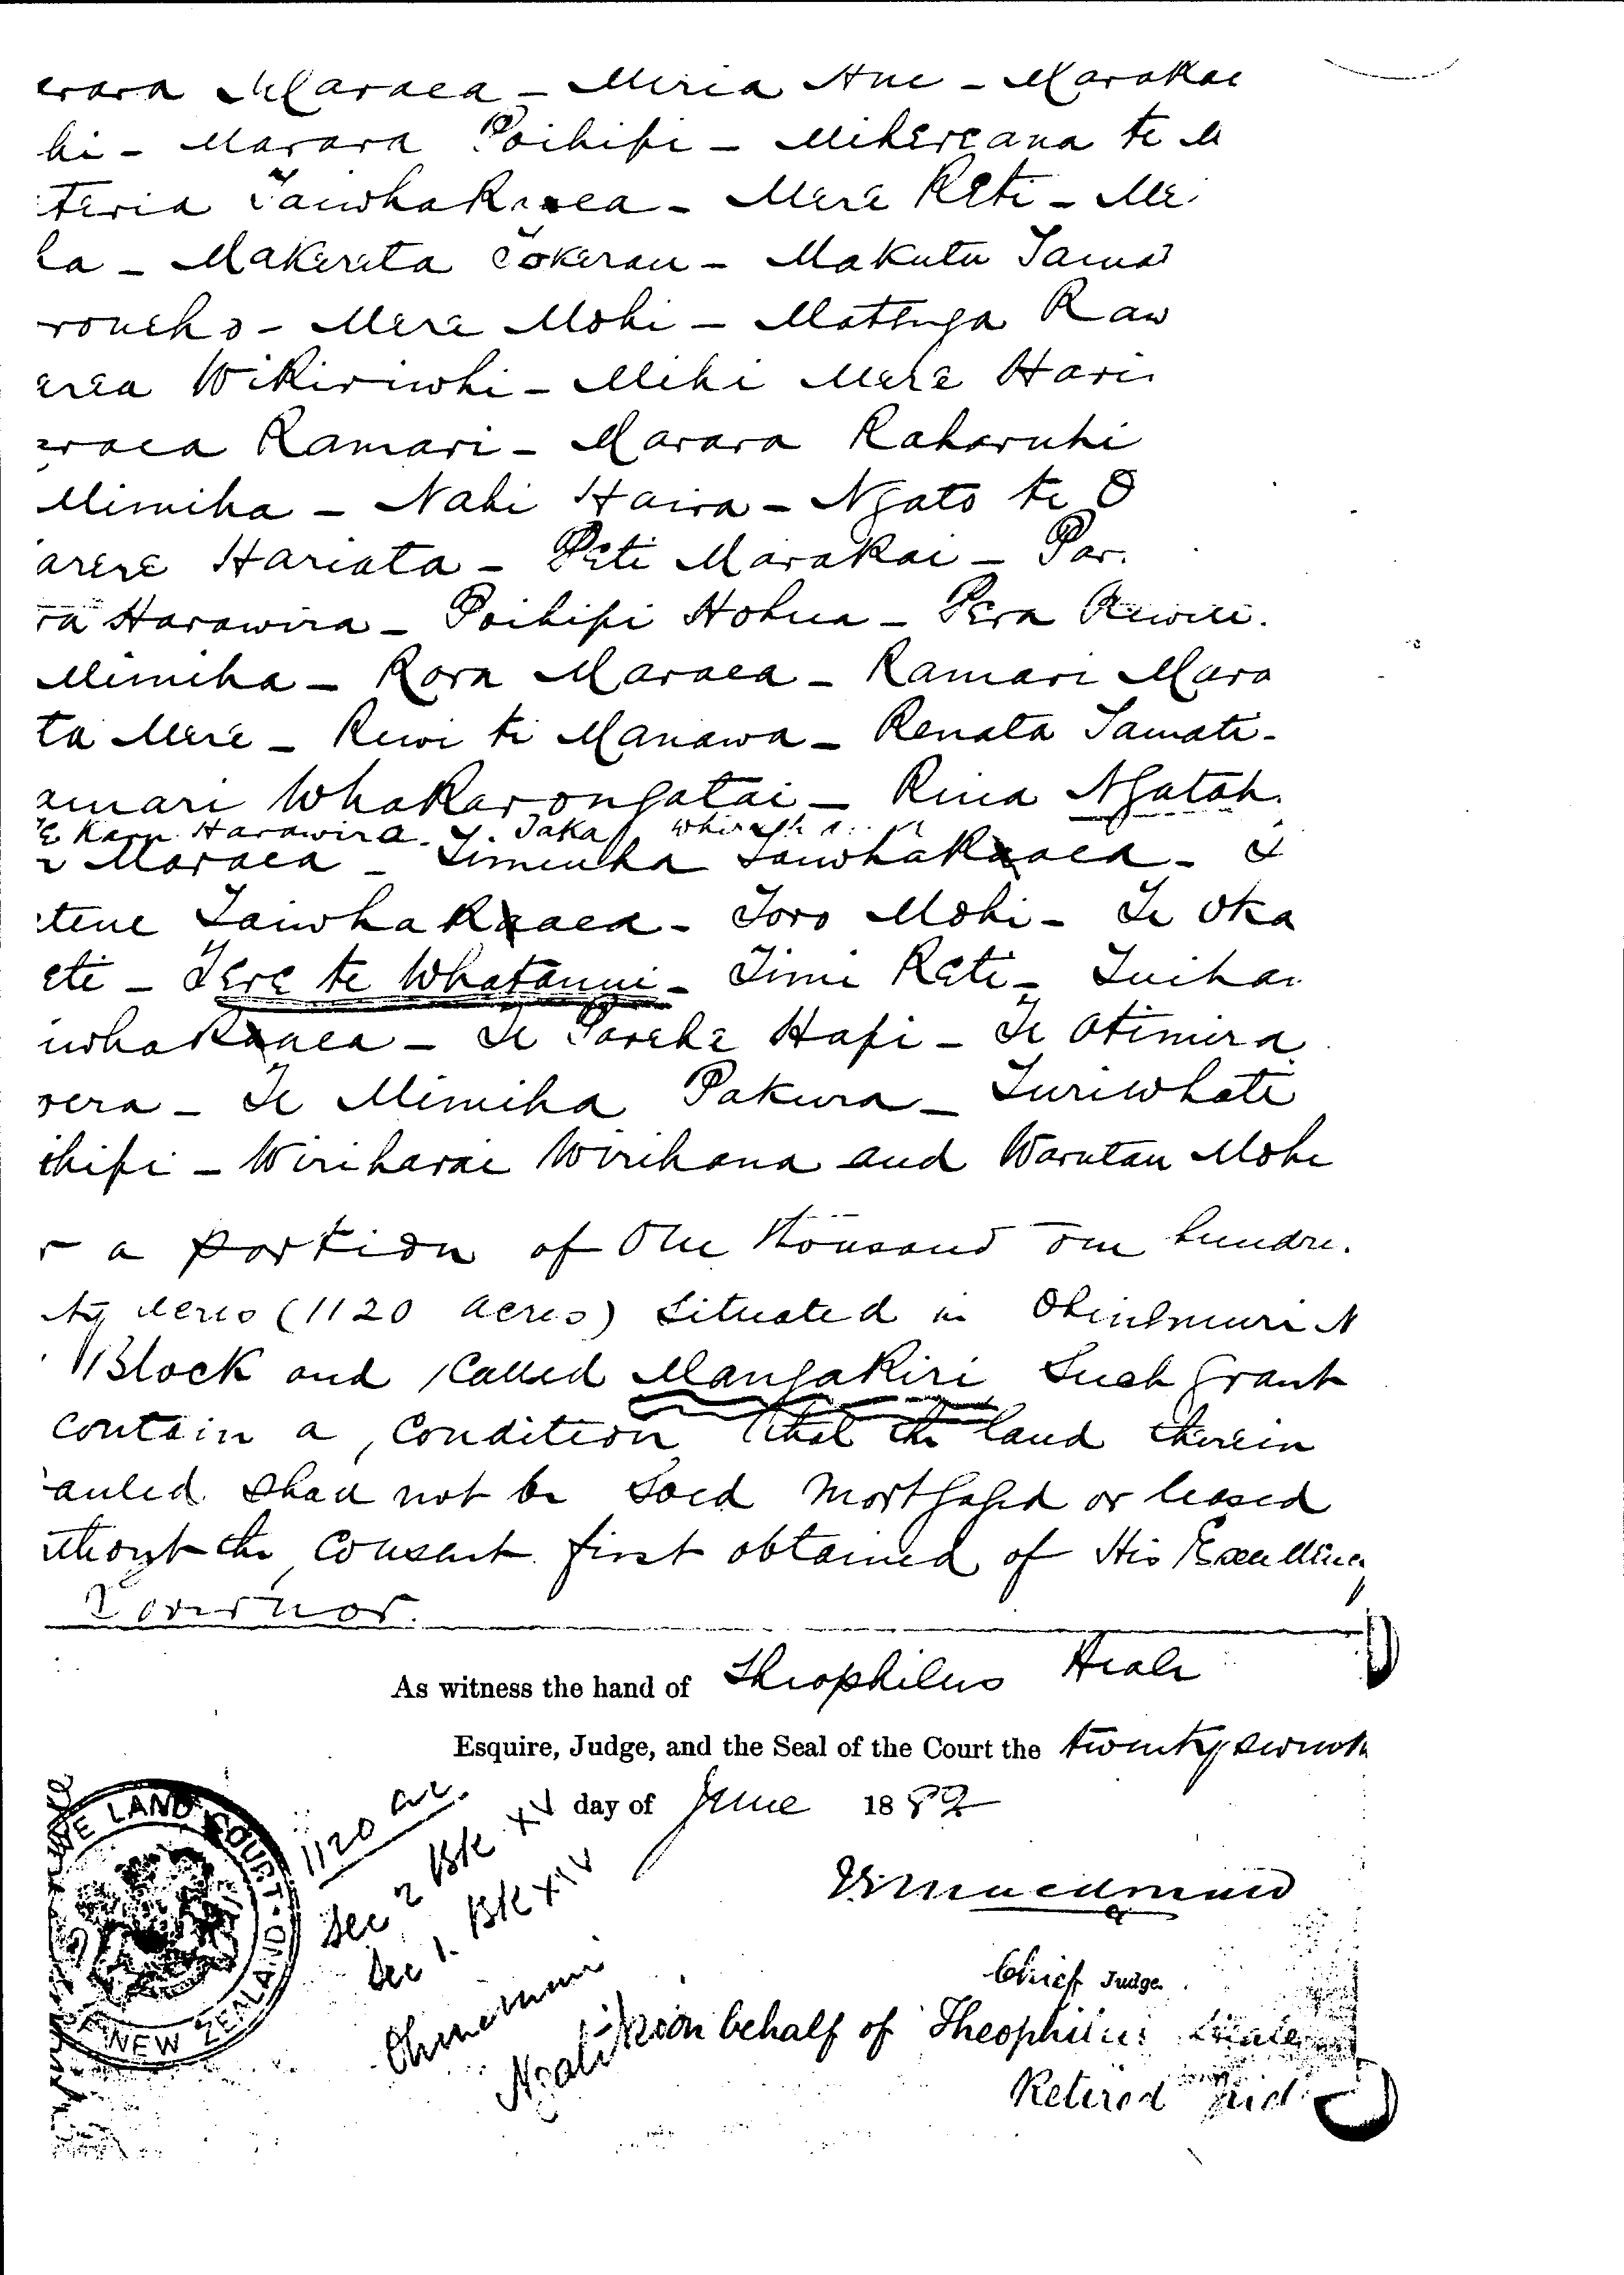 erara Maraea - Miria Hue - Marakae
hi - Marara Poihipi - Mihereana te M
teria Taiwhakaea - Mere Reti - Me
ha - Makereta Tokerau - Makutu Tamat
roueho - Mere Mohi - Matenga Raw
erea Wikiriwhi - Mihi Mere Hari
araea Ramari - Marara Raharuhi
Mimiha - Nahi Haira - Ngato te O
arere Hariata - Peti Marakai - Par
ra Harawira - Poihipi Hohua - Pera Rewiti
Mimiha - Rora Maraea - Ramari Mara
ta Mere - Rewi te Manawa - Renata Tamati -
amari Whakarongatai - Riria Ngatah
e Karu Harawira - Te Taka
Maraea - Timiuha Taiwhakaaea - &
tene Taiwhakaaea - Toro Mohi - Te Oka
eti - Tere te Whatanui - Timi Reti - Tuihan
iwhakaaea - Te Parehe Hapi - Te Otimira
rera - Te Mimiha Pakura - Turiwhati
ihipi - Wiriharai Wirihana and Warutau Mohi
r a portion of One thousand one hundre
ty Acres (1120 acres) situated in Ohinemuri N
Block and called Mangakiri Such Grant
contain a condition that the land therein
anted shall not be sold mortgaged or leased
ithout the consent first obtained of His Excellency
Governor.
As witness the hand of Theophilus Heale
Esquire, Judge, and the Seal of the Court the twenty seventh
day of June 1882
1120 ac.
Sec 2 Blk XV
Sec 1. Blk XIV
Ohinemuri
NATIVE LAND COURT
OF NEW ZEALAND
Chief Judge.
on behalf of Theophilus Heale
Retired Jud